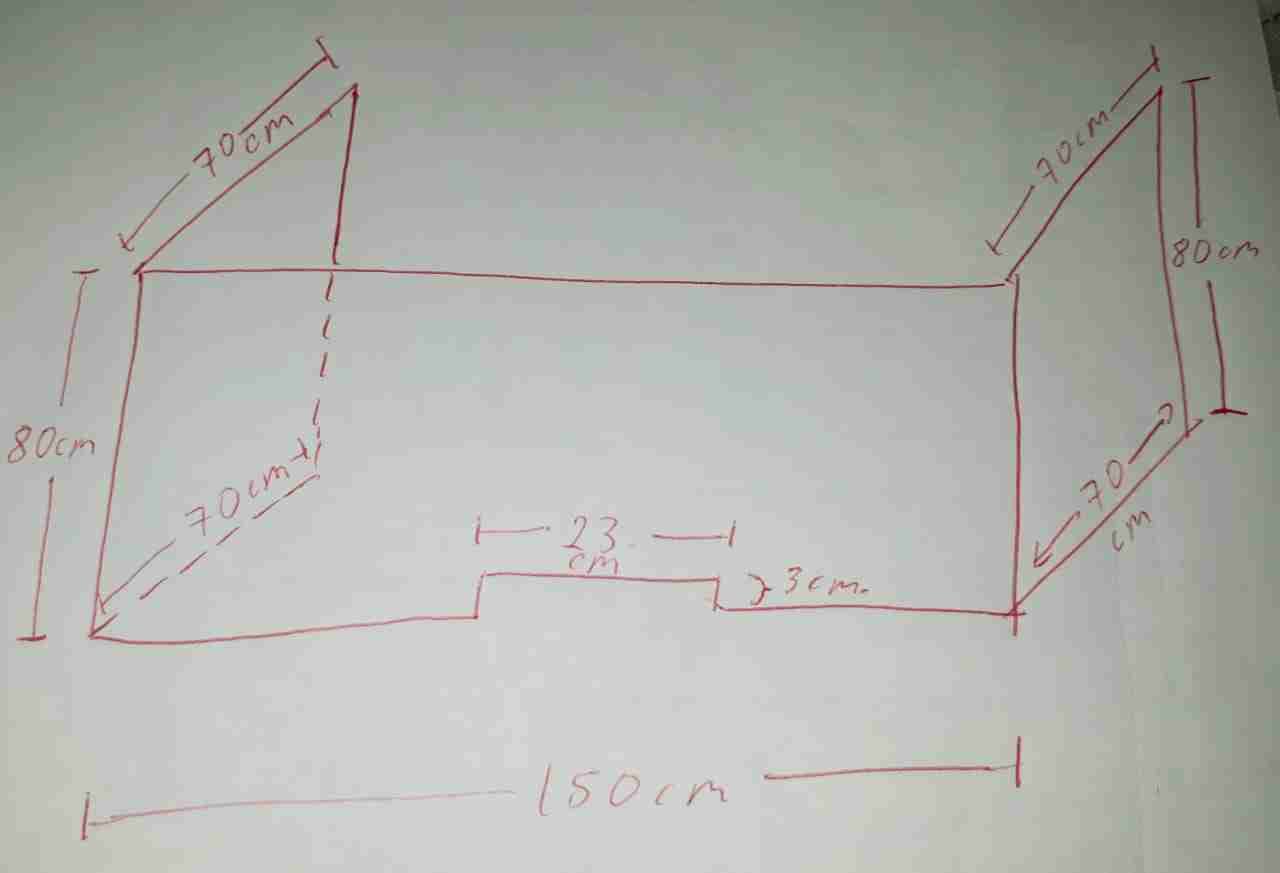 70cm
70cm
80cm
80cm
70cm
70
cm
23
cm
3cm.
150cm